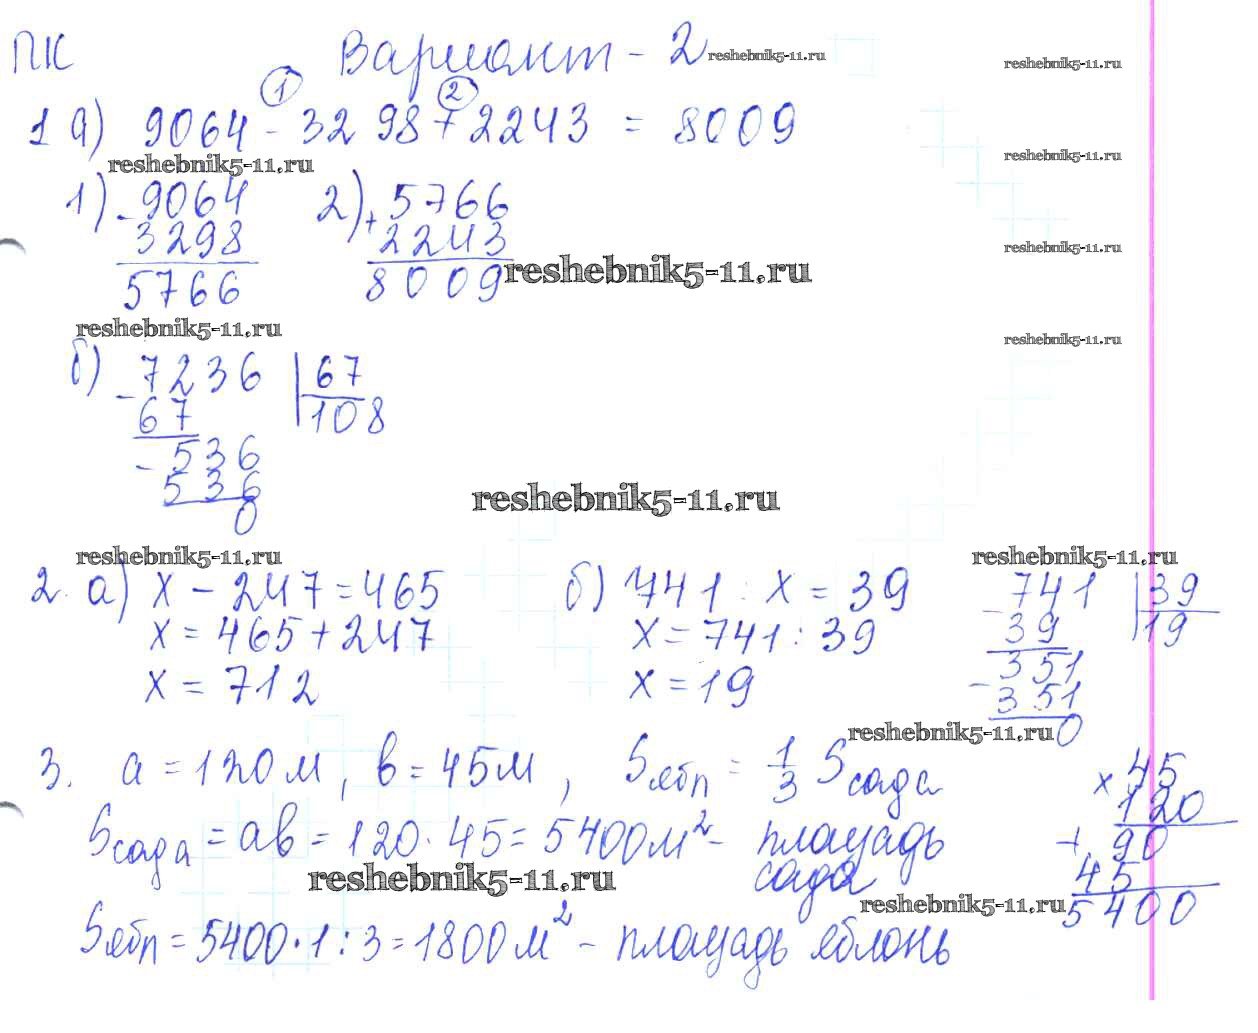 ПК Вариант - 2 reshebnik5-11.ru
reshebnik5-11.ru
1 2
1 а) 9064 - 3298 + 2243 = 8009
reshebnik5-11.ru reshebnik5-11.ru
1) - 9064 2) + 5766
3298 2243
reshebnik5-11.ru
5766 8009 reshebnik5-11.ru
reshebnik5-11.ru reshebnik5-11.ru
б) - 7236 67
67 108
- 536
536
0
reshebnik5-11.ru
reshebnik5-11.ru reshebnik5-11.ru
2. а) x - 247 = 465 б) 741 : x = 39 - 741 39
x = 465 + 247 x = 741 : 39 39 19
x = 712 x = 19 - 351
351
0
reshebnik5-11.ru
3. a = 120 м, b = 45 м, Sябл = 1/3 Sсада × 45
120
Sсада = ab = 120 · 45 = 5400 м² - площадь + 90
сада 45
reshebnik5-11.ru reshebnik5-11.ru 5400
Sябл = 5400 · 1 : 3 = 1800 м² - площадь яблонь